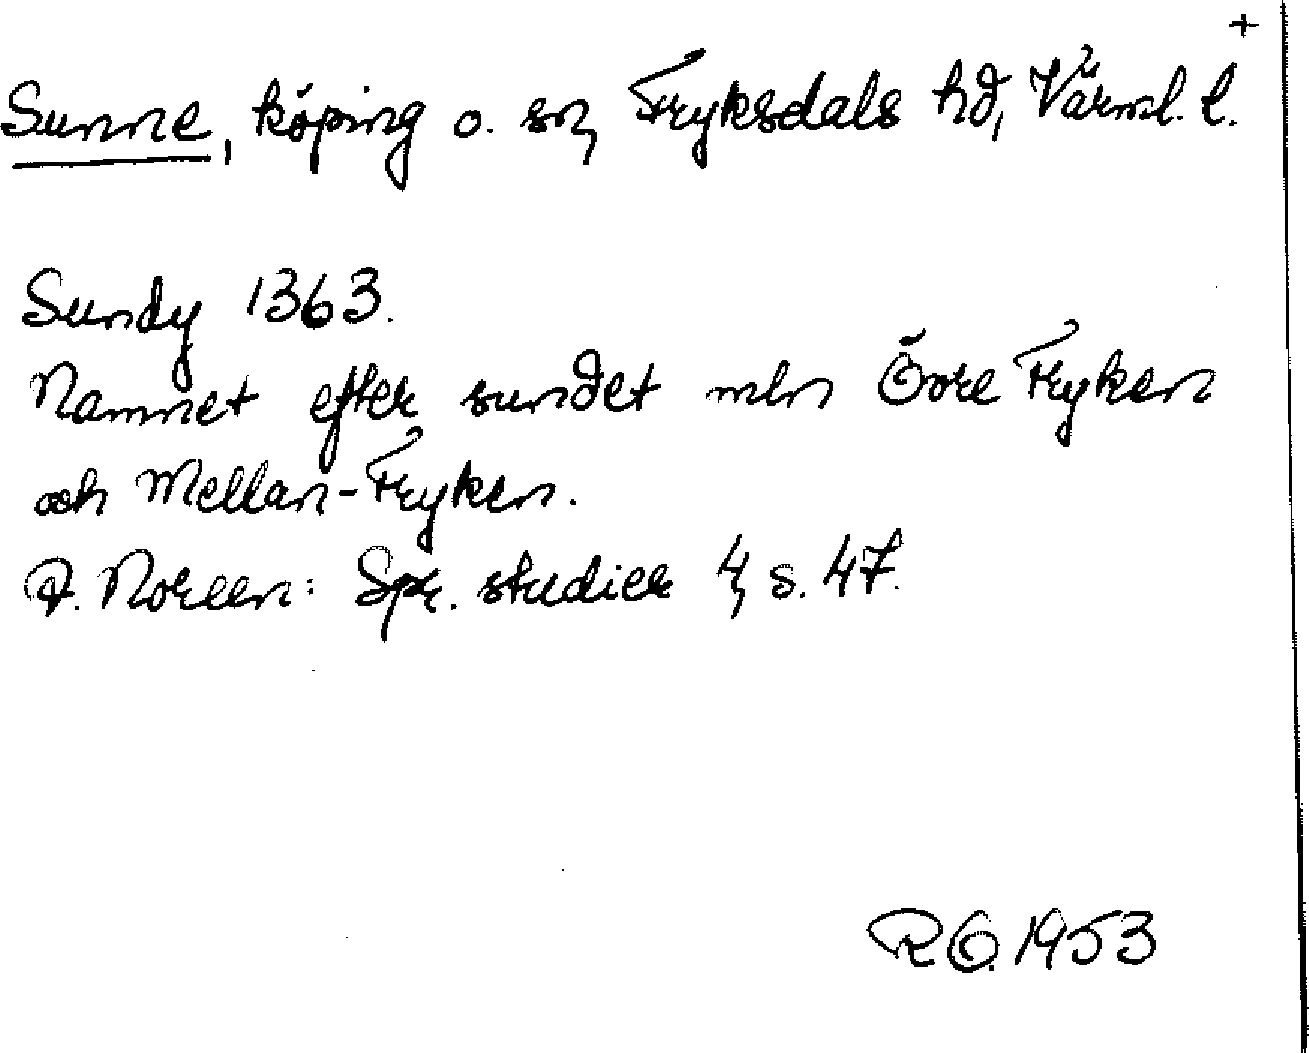 +
Sunne, köping o. sn, Fryksdals hd, Värml. l.
Sundy 1363.
Namnet efter sundet mln Övre Fryken
och Mellan-Fryken.
A. Noreen: Spr. studier 4, s. 47.
RO. 1953